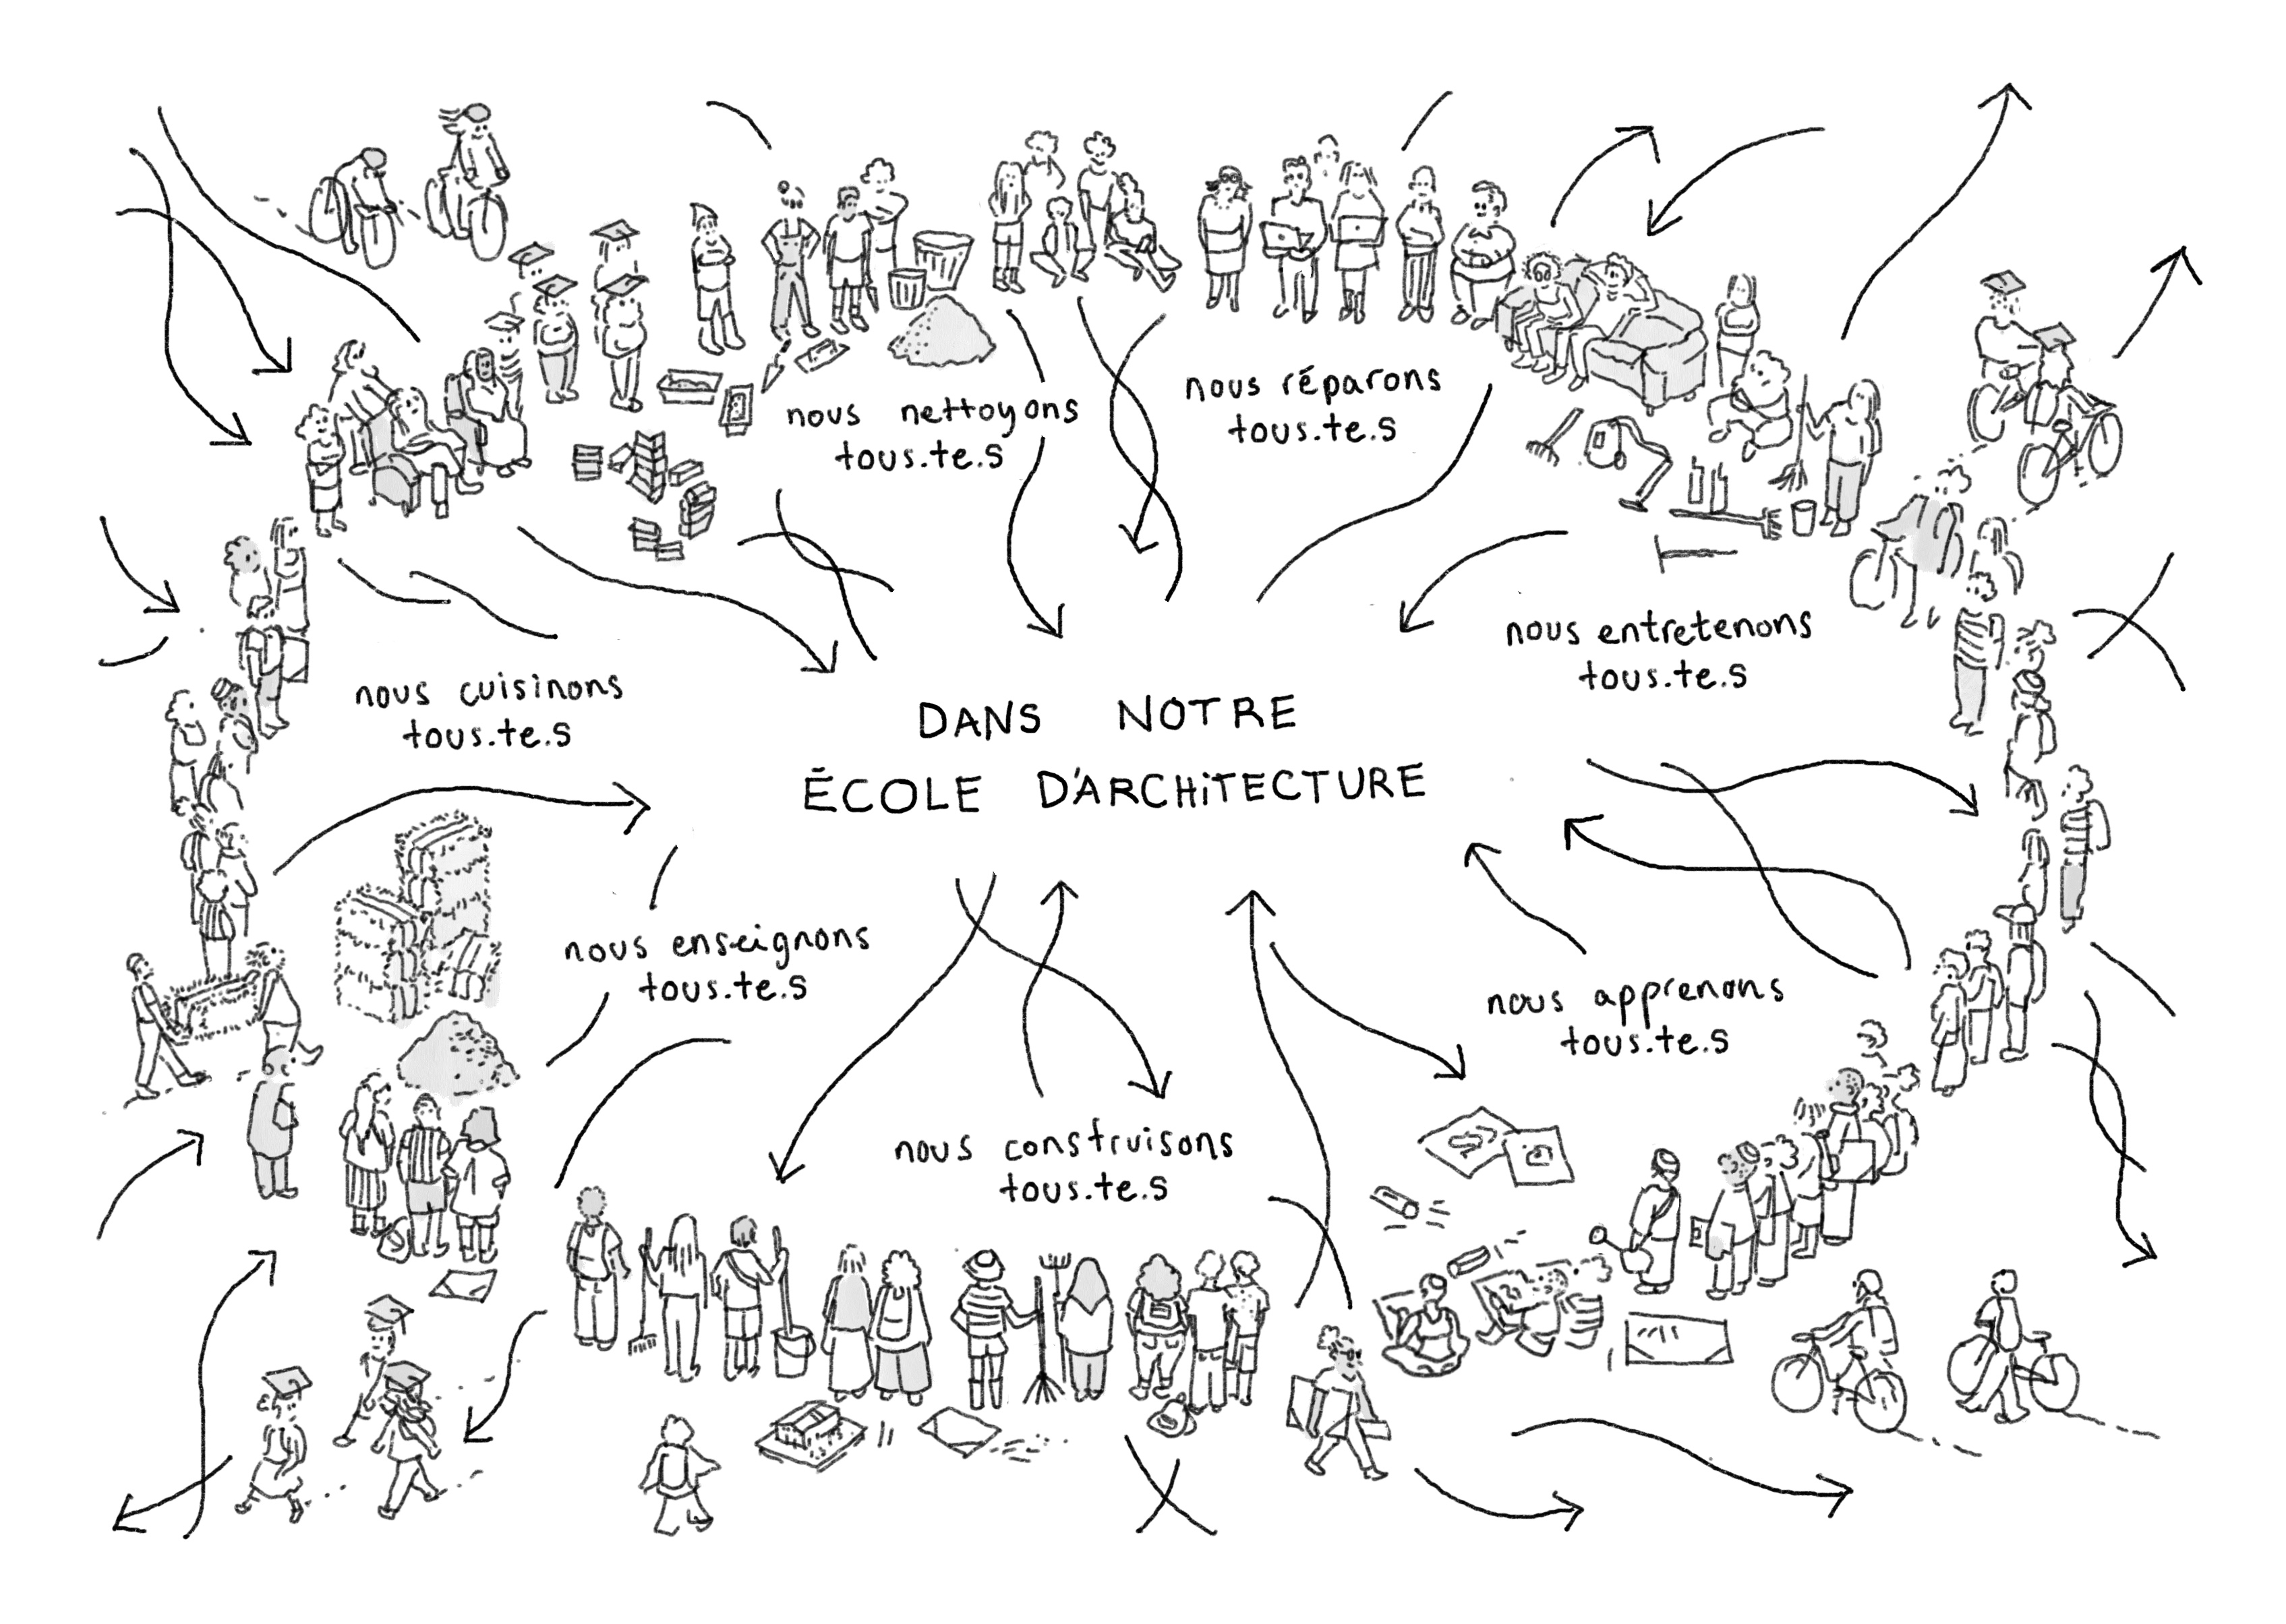 nous nettoyons
tous.te.s
nous réparons
tous.te.s
nous cuisinons
tous.te.s
nous entretenons
tous.te.s
DANS NOTRE
ÉCOLE D'ARCHiTECTURE
nous enseignons
tous.te.s
nous apprenons
tous.te.s
nous construisons
tous.te.s